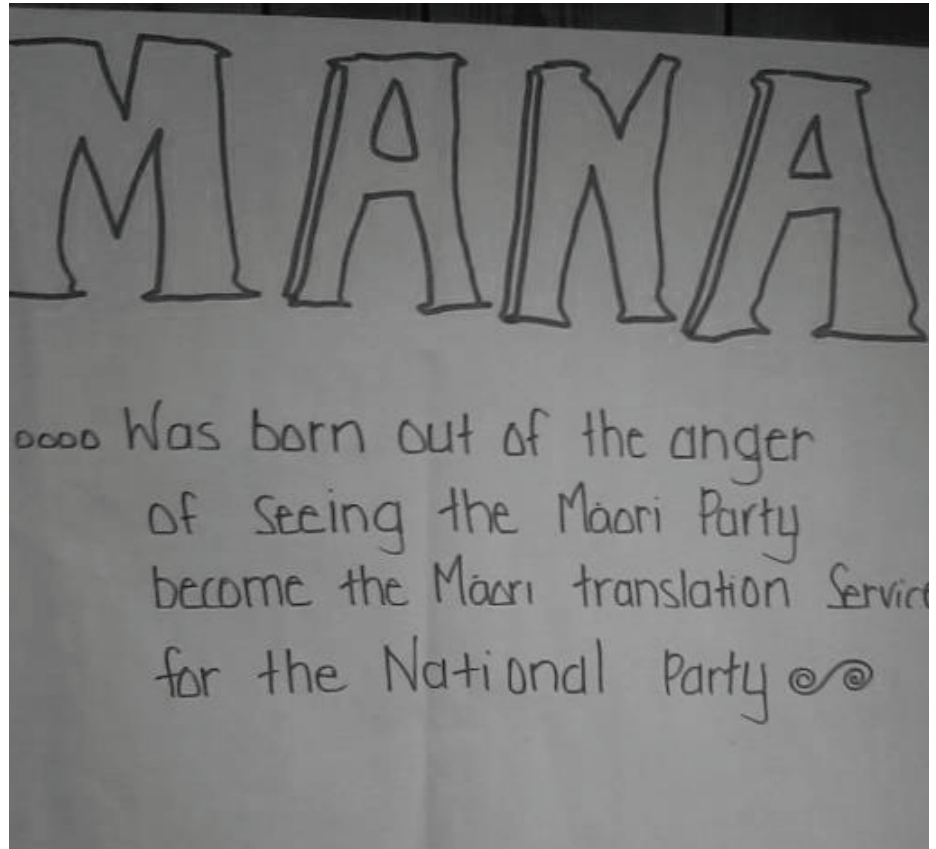 MANA
oooo Was born out of the anger
of seeing the Māori Party
become the Māori translation Service
for the National Party